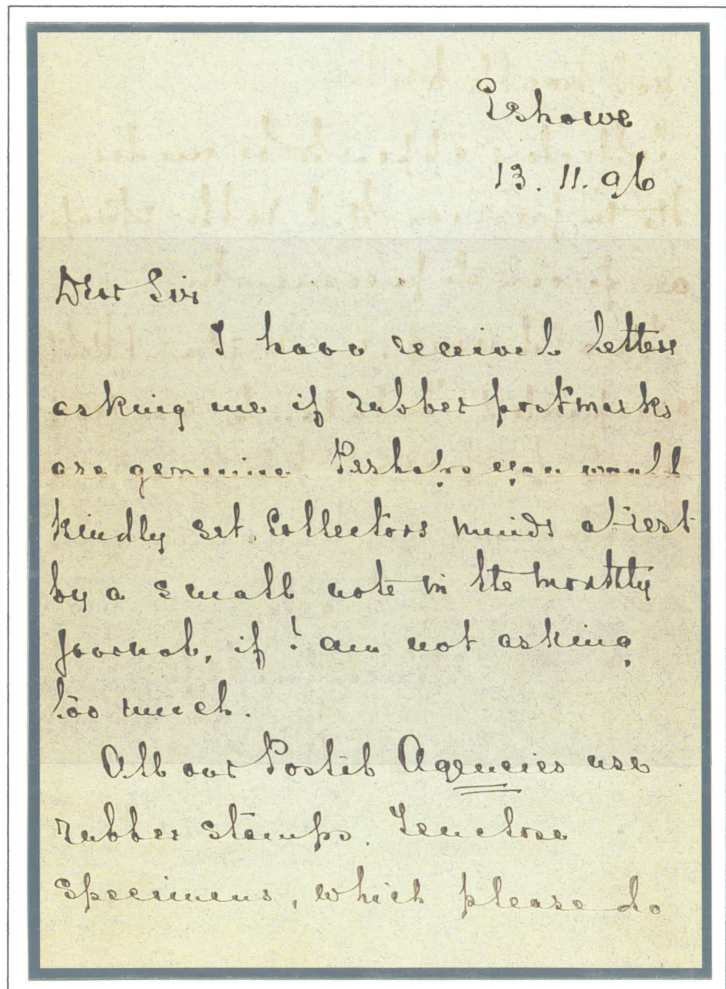 Eshowe
13. 11. 96
Dear Sir
I have received letters
asking me if rubber postmarks
are genuine. Perhaps you would
kindly set Collectors minds at rest
by a small note in the Monthly
Journal, if I am not asking
too much.
All our Postal Agencies use
rubber stamps. I enclose
specimens, which please do